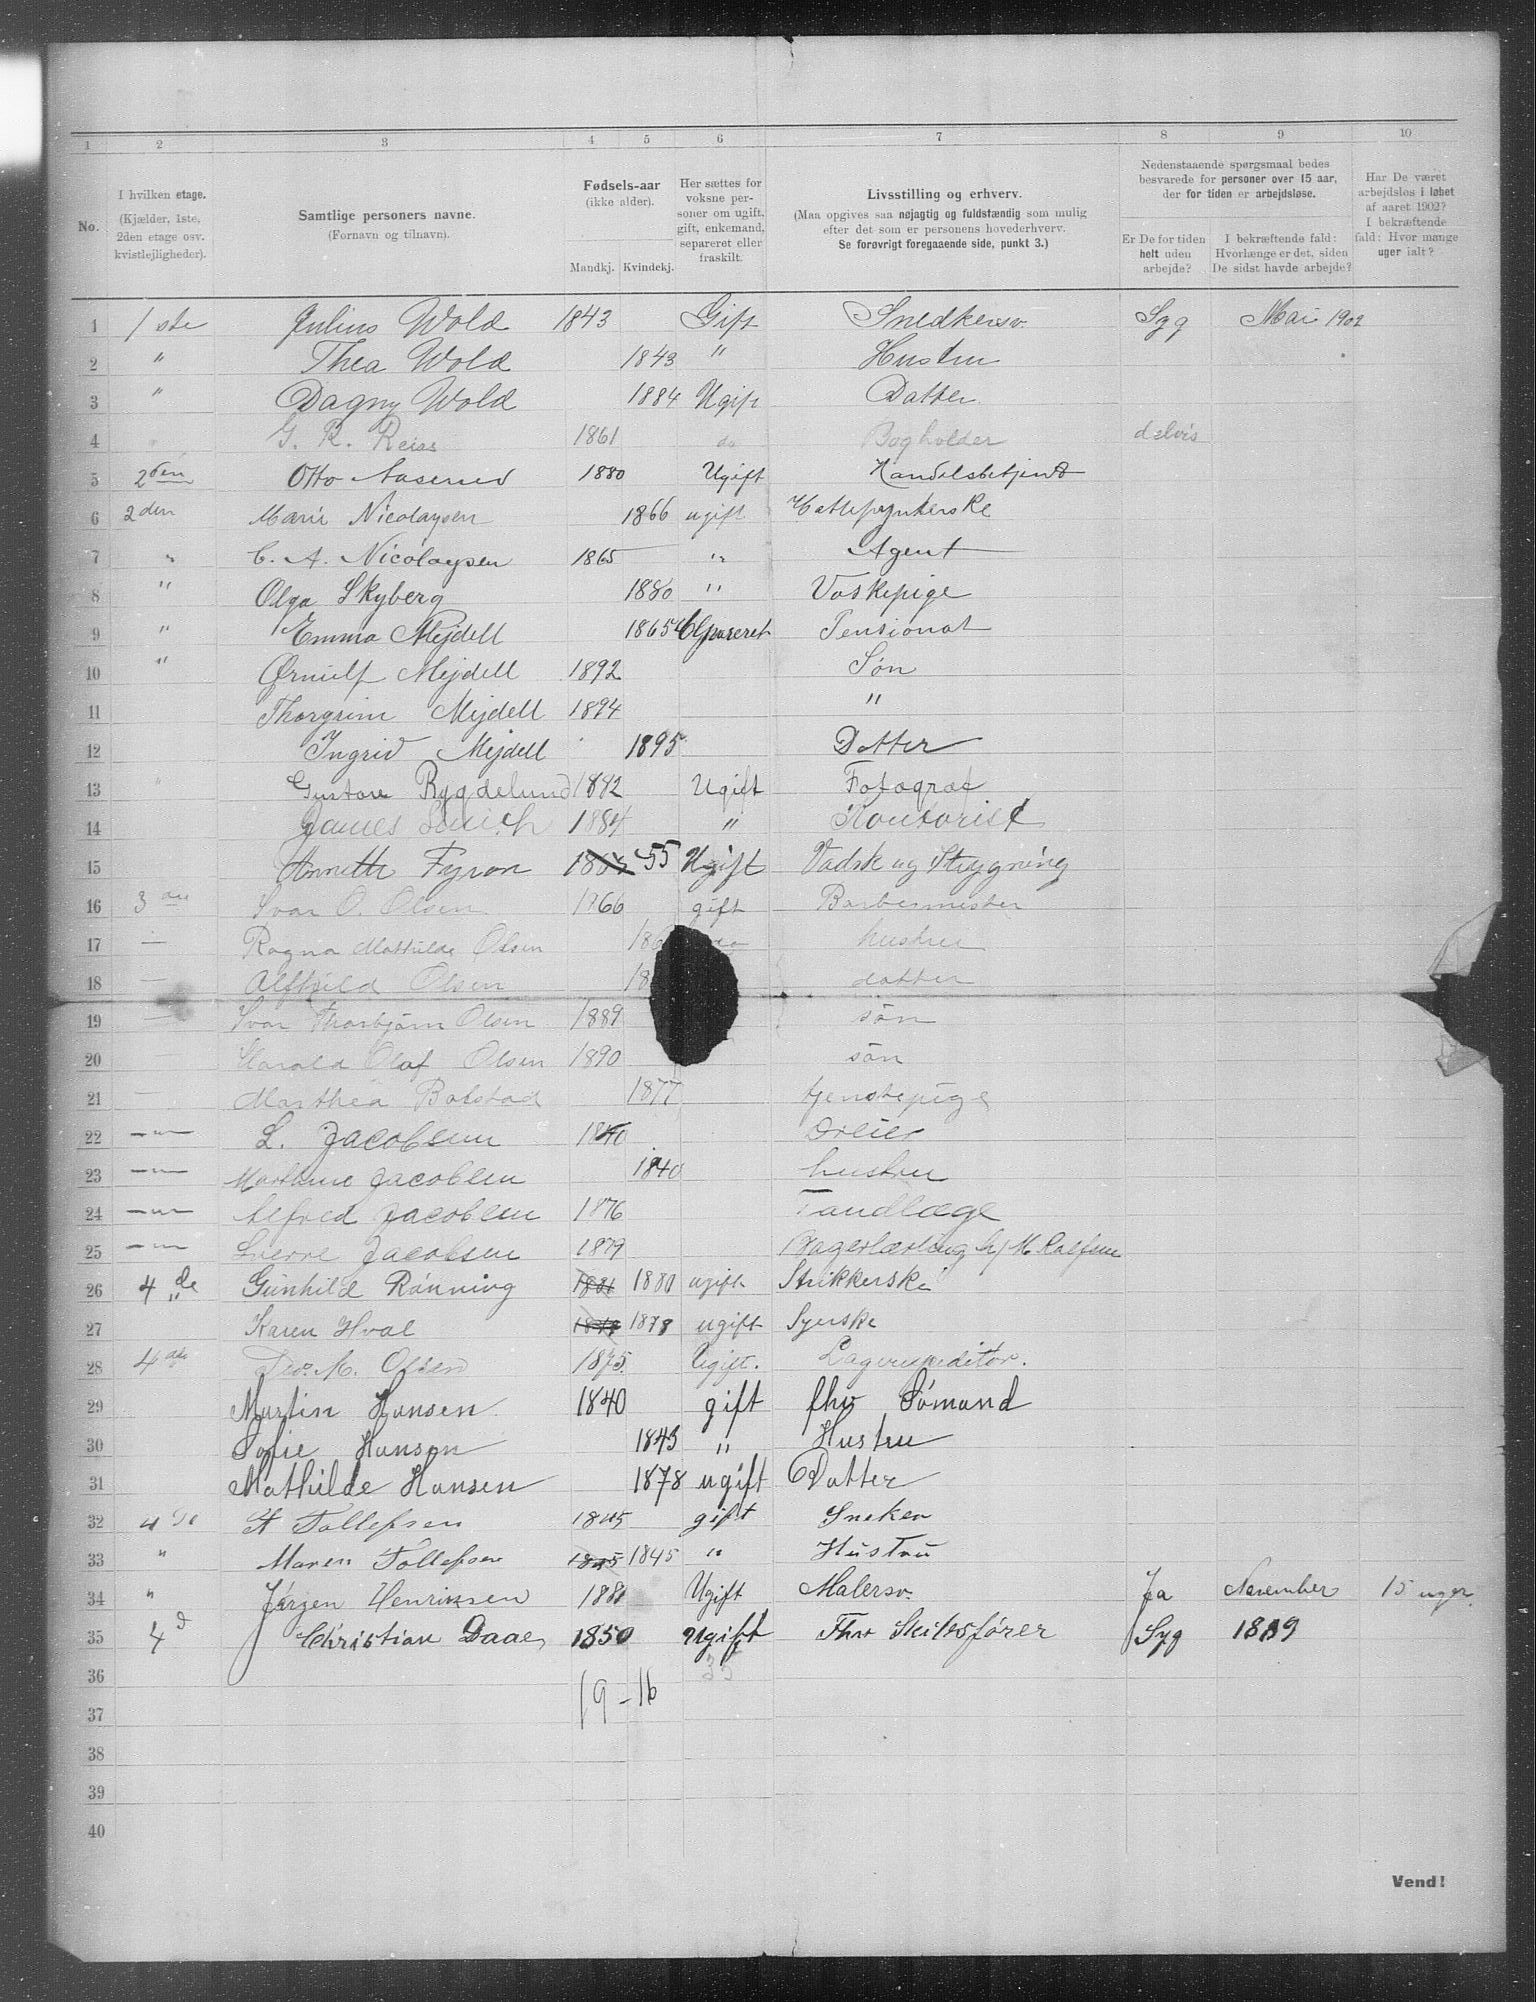 1 2 3 4 5 6 7 8 9 10
No.
I hvilken etage.
(Kjælder, 1ste, 2den etage osv. kvistlejligheder).
Samtlige personers navne.
(Fornavn og tilnavn).
Fødsels-aar
(ikke alder).
Mandkj. Kvindekj.
Her sættes for voksne personer om ugift, gift, enkemand, separeret eller fraskilt.
Livsstilling og erhverv.
(Maa opgives saa nøjagtig og fuldstændig som mulig efter det som er personens hovederhverv.
Se forøvrigt foregaaende side, punkt 3.)
Nedenstaaende spørgsmaal bedes besvarede for personer over 15 aar, der for tiden er arbejdsløse.
Er De for tiden helt uden arbejde?
I bekræftende fald: Hvorlænge er det, siden De sidst havde arbejde?
Har De været arbejdsløs i løbet af aaret 1902? I bekræftende fald: Hvor mange uger ialt?
1 1 ste Julius Wold 1843 Gift Snedkersv. Syg Mai 1902
2 " Thea Wold 1843 " Hustru
3 " Dagny Wold 1884 Ugift Datter
4 G. R. Reiss 1861 do Bogholder delvis
5 2den Otto Aaserud 1880 Ugift Handelsbetjent
6 2den Marie Nicolaysen 1866 ugift Hattepynterske
7 " C. A. Nicolaysen 1865 " Agent
8 " Olga Skyberg 1880 " Vaskepige
9 " Emma Mejdell 1865 Separeret Pensionat
10 " Ørnulf Mejdell 1892 Søn
11 Thorgrim Mejdell 1894 "
12 Ingrid Mejdell 1895 Datter
13 " Gustav Rygdelund 1882 Ugift Fotograf
14 James 1884 " Kontorist
15 Annette Fyron 55 Ugift Vadsk og Strygning
16 3 Ivar O. Olsen 1866 gift Barbermester
17 — Ragna Mathilde Olsen 186 hustru
18 — Alfhild Olsen 18 datter
19 — Ivar Thorbjørn Olsen 1889 søn
20 — Harald Olaf Olsen 1890 søn
21 — Marthea Bolstad 1877 tjenstepige
22 —"— L. Jacobsen 1840 Dreier
23 —"— Jacobsen 1840 hustru
24 —"— Alfred Jacobsen 1876 Tandlæge
25 —"— Sverre Jacobsen 1879
26 4 de Gunhild Rønning 1881 1880 ugift Strikkerske
27 " Karen Hval 1878 1878 ugift Syerske
28 4 M. Olsen 1875 Ugift. Lagerexpeditør.
29 Martin Hansen 1840 gift fhv Sømand
30 Sofie Hansen 1843 " Hustru
31 Mathilde Hansen 1878 ugift Datter
32 4 de H Tollefsen 1845 gift Sneker
33 " Maren Tollefsen 1845 1845 " Hustru
34 " Jørgen Henriksen 1880 Ugift Malersv. Ja November 15 uger.
35 4 d Christian Daae, 1850 Ugift Fhv Skibsfører Syg 1889
36 35
37 19-16
38
39
40
Vend!